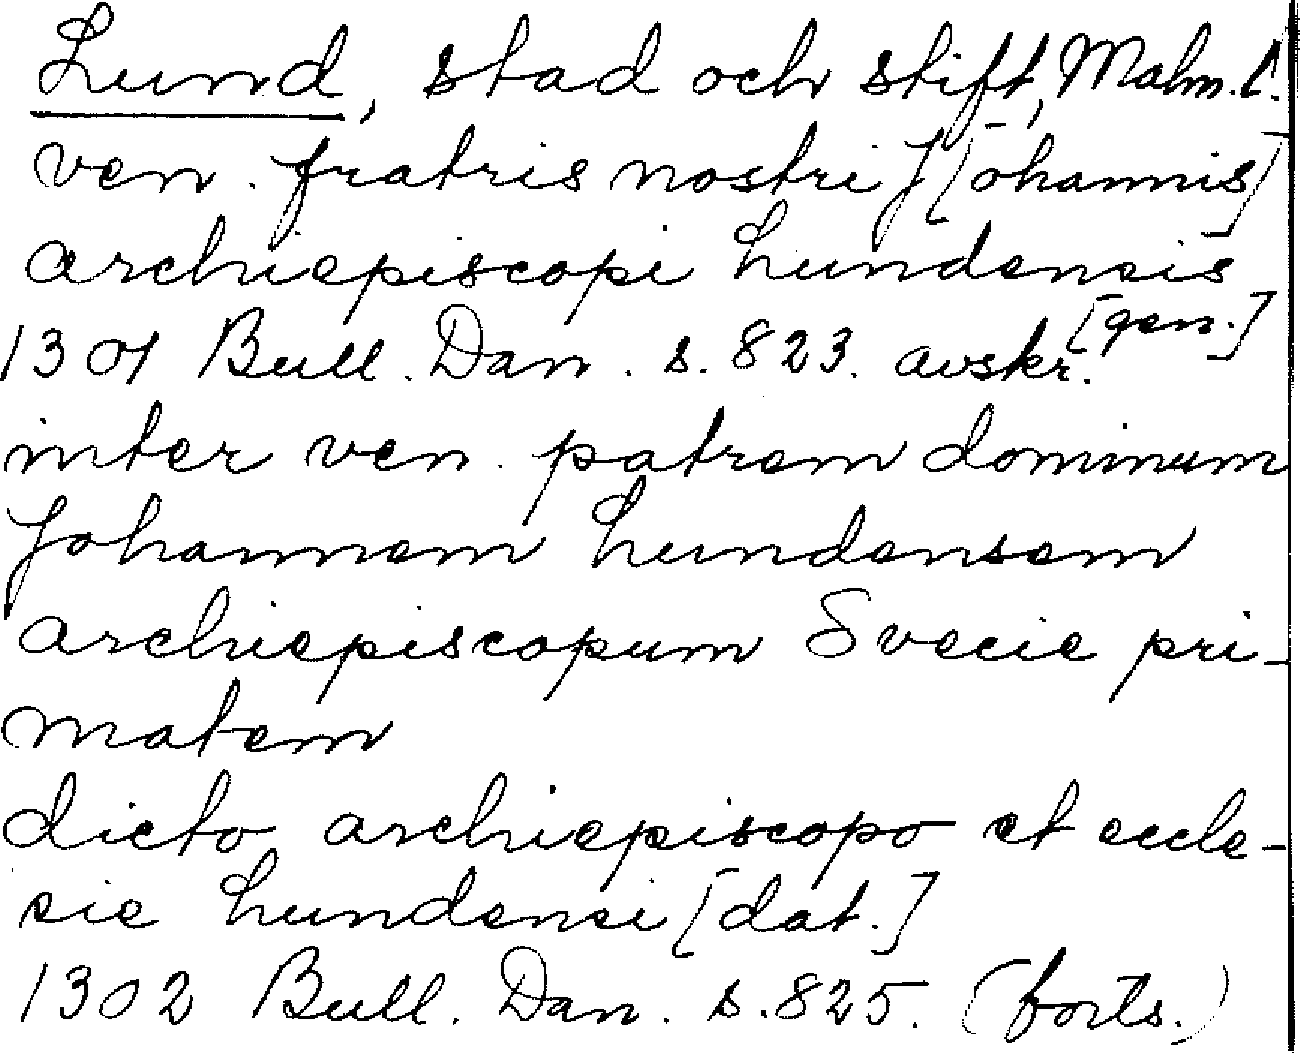 Lund, stad och stift, Malm. l.
ven. fratris nostri J[ohannis]
archiepiscopi Lundensis
[gen.]
1301 Bull. Dan. s. 823. avskr.
inter ven. patrem dominum
Johannem Lundensem
archiepiscopum Svecie pri-
matem
dicto archiepiscopo et eccle-
sie Lundensi [dat.]
1302 Bull. Dan. s. 825. (forts.)